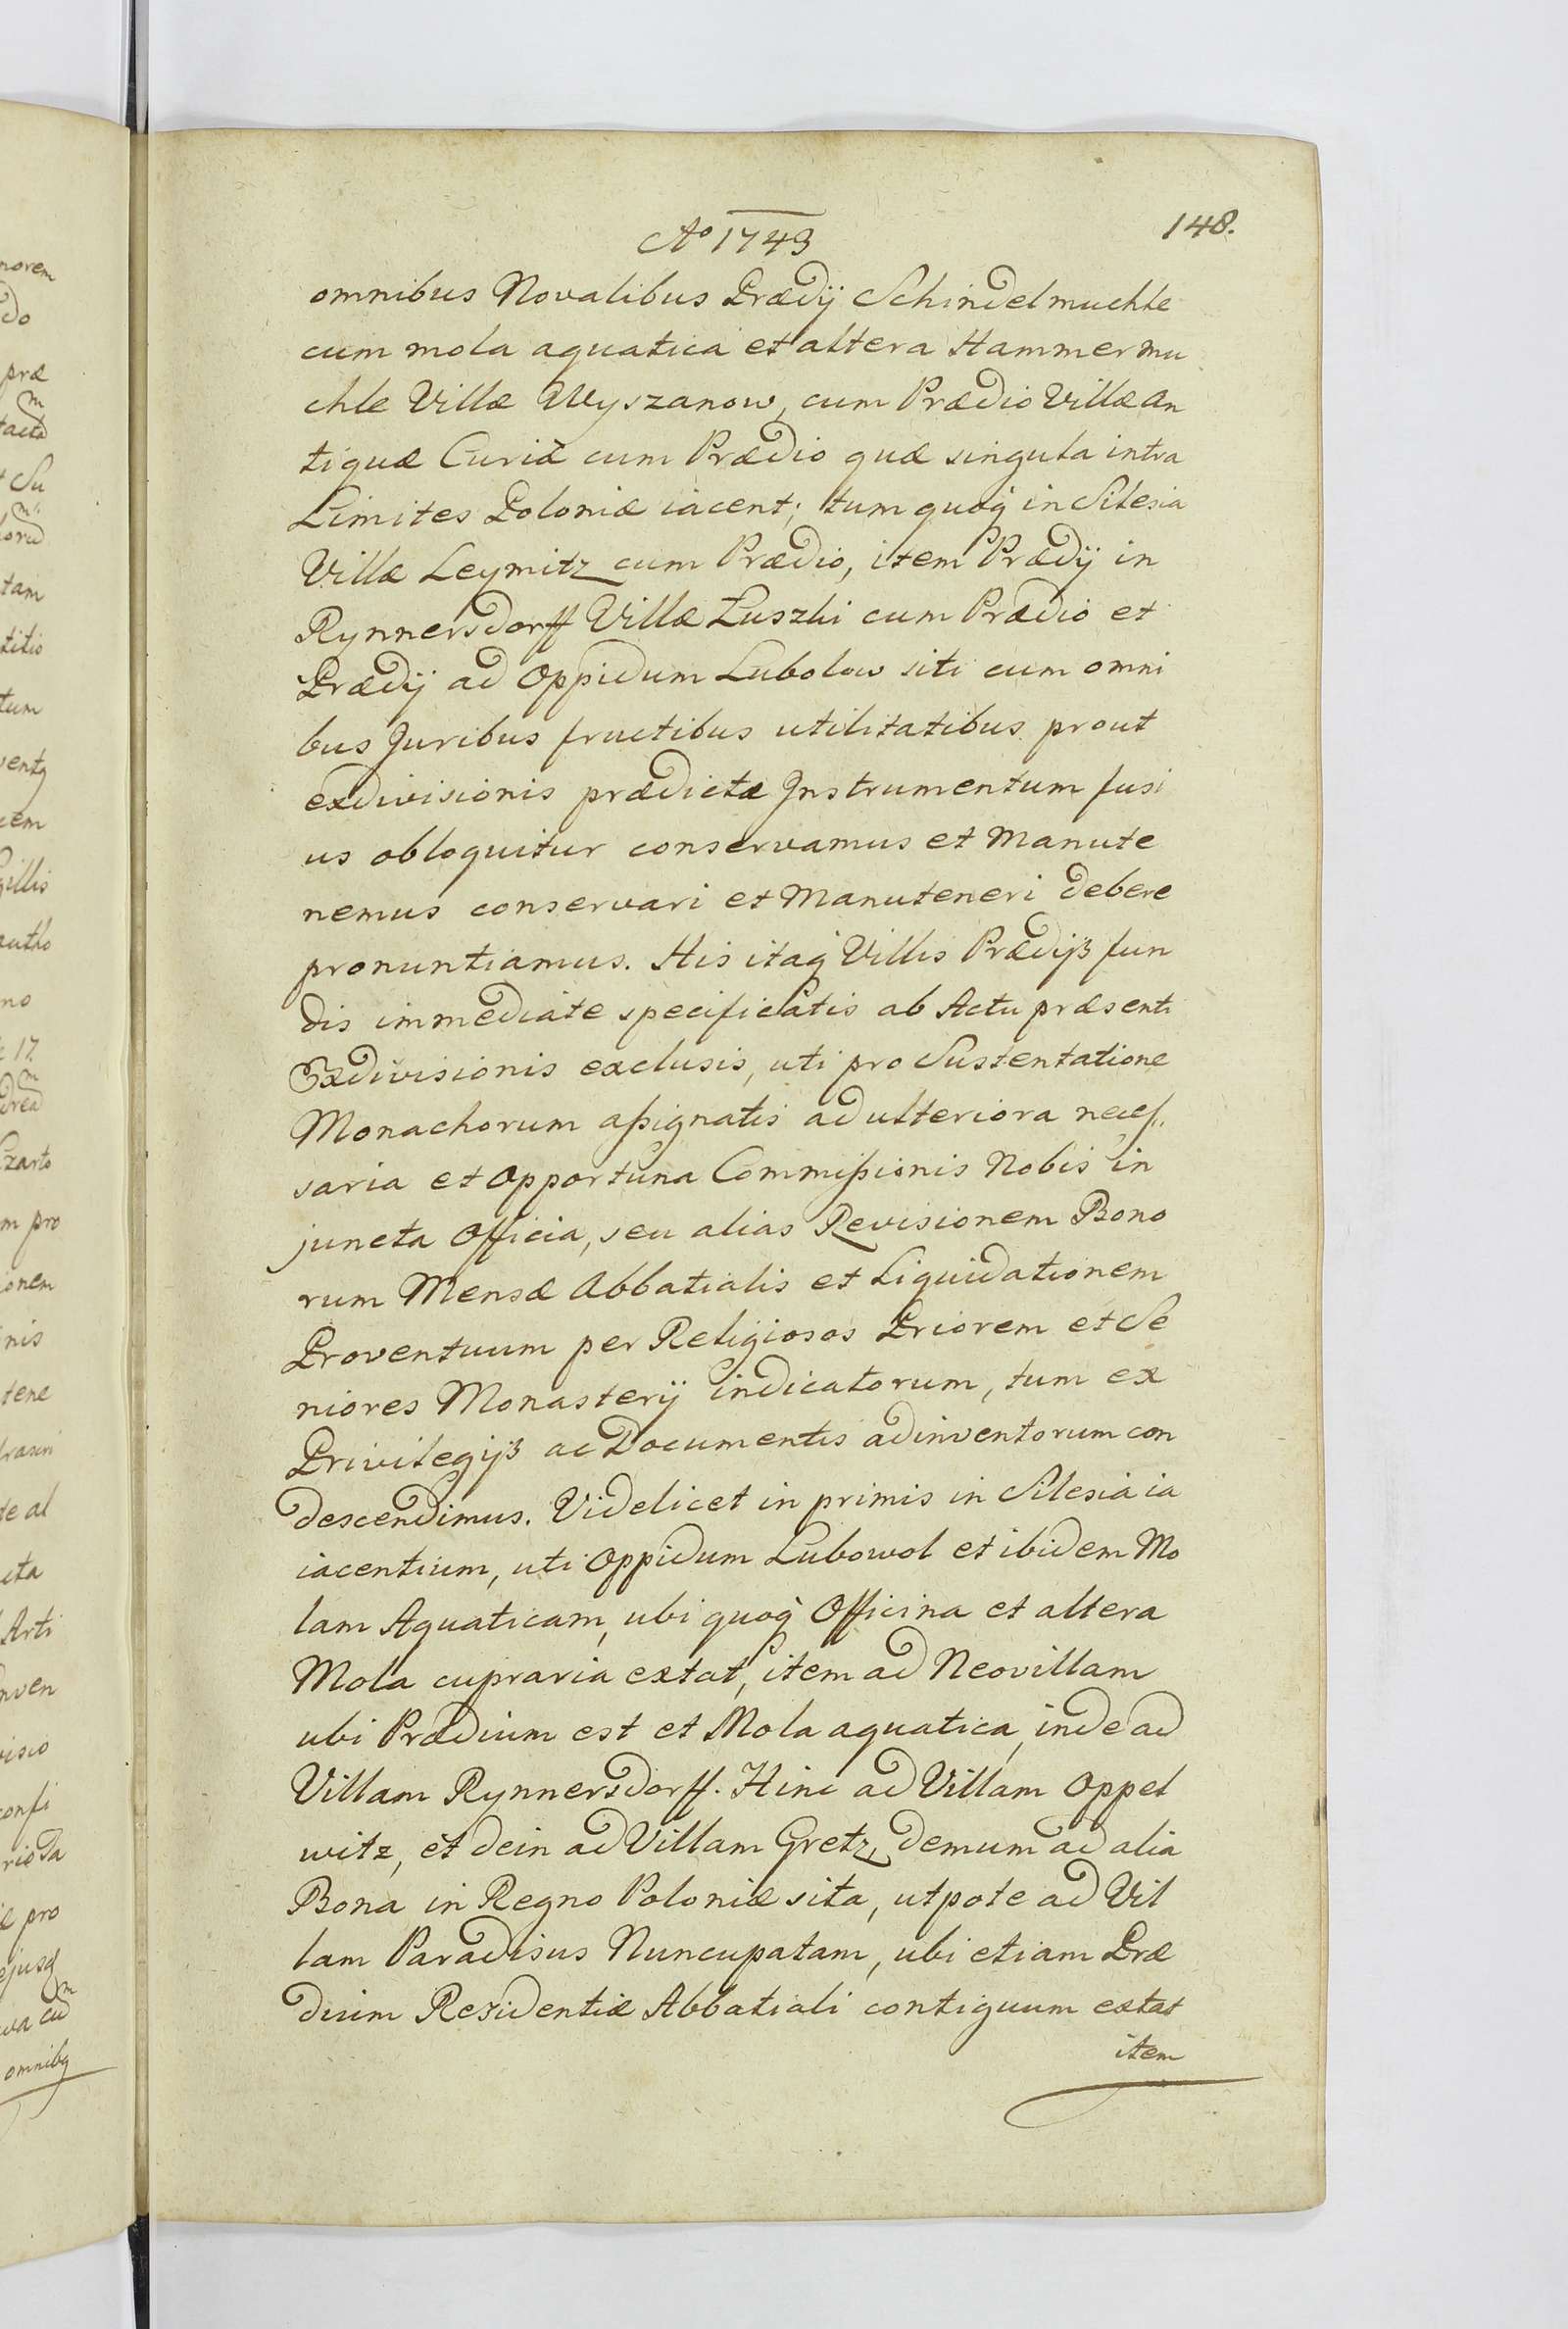 Aº 1743
148.
omnibus Novalibus Prædij Schindelmuchle
cum mola aquatica et altera Hammermu
chle Villæ Wyszanow, cum Prædio Villæ An
tiquæ Curiæ cum Prædio quæ singula intra
Limites Poloniæ iacent; tum quoq in Silesia
Villæ Leymitz cum Prædio, item Prædij in
Rynnersdorff Villæ Luszki cum Prædio et
Prædij ad Oppidum Lubolow siti cum omni
bus Juribus fructibus utilitatibus prout
exdivisionis prædictæ Instrumentum fusi
us obloquitur conservamus et Manute
nemus conservari et Manuteneri debere
pronuntiamus. His itaq Villis Prædijs fun
dis immediate specificatis ab Actu præsenti
Exdivisionis exclusis, uti pro Sustentatione
Monachorum aßignatis ad ulteriora necess
saria et Opportuna Commißionis Nobis in
juncta Officia, seu alias Revisionem Bono
rum Mensæ Abbatialis et Liquidationem
Proventuum per Religiosos Priorem et Se
niores Monasterij indicatorum, tum ex
Privilegijs ac Documentis adinventorum con
descendimus. Videlicet in primis in Silesia ia
iacentium, uti Oppidum Lubowol et ibidem Mo
lam Aquaticam, ubi quoq Officina et altera
Mola cupraria extat, item ad Neovillam
ubi Prædium est et Mola aquatica, inde ad
Villam Rynnersdorff. Hinc ad Villam Oppel
witz, et dein ad Villam Gretz, demum ad alia
Bona in Regno Poloniæ sita, utpote ad Vil
lam Paradisus Nuncupatam, ubi etiam Præ
dium Residentiæ Abbatiali contiguum extat
item